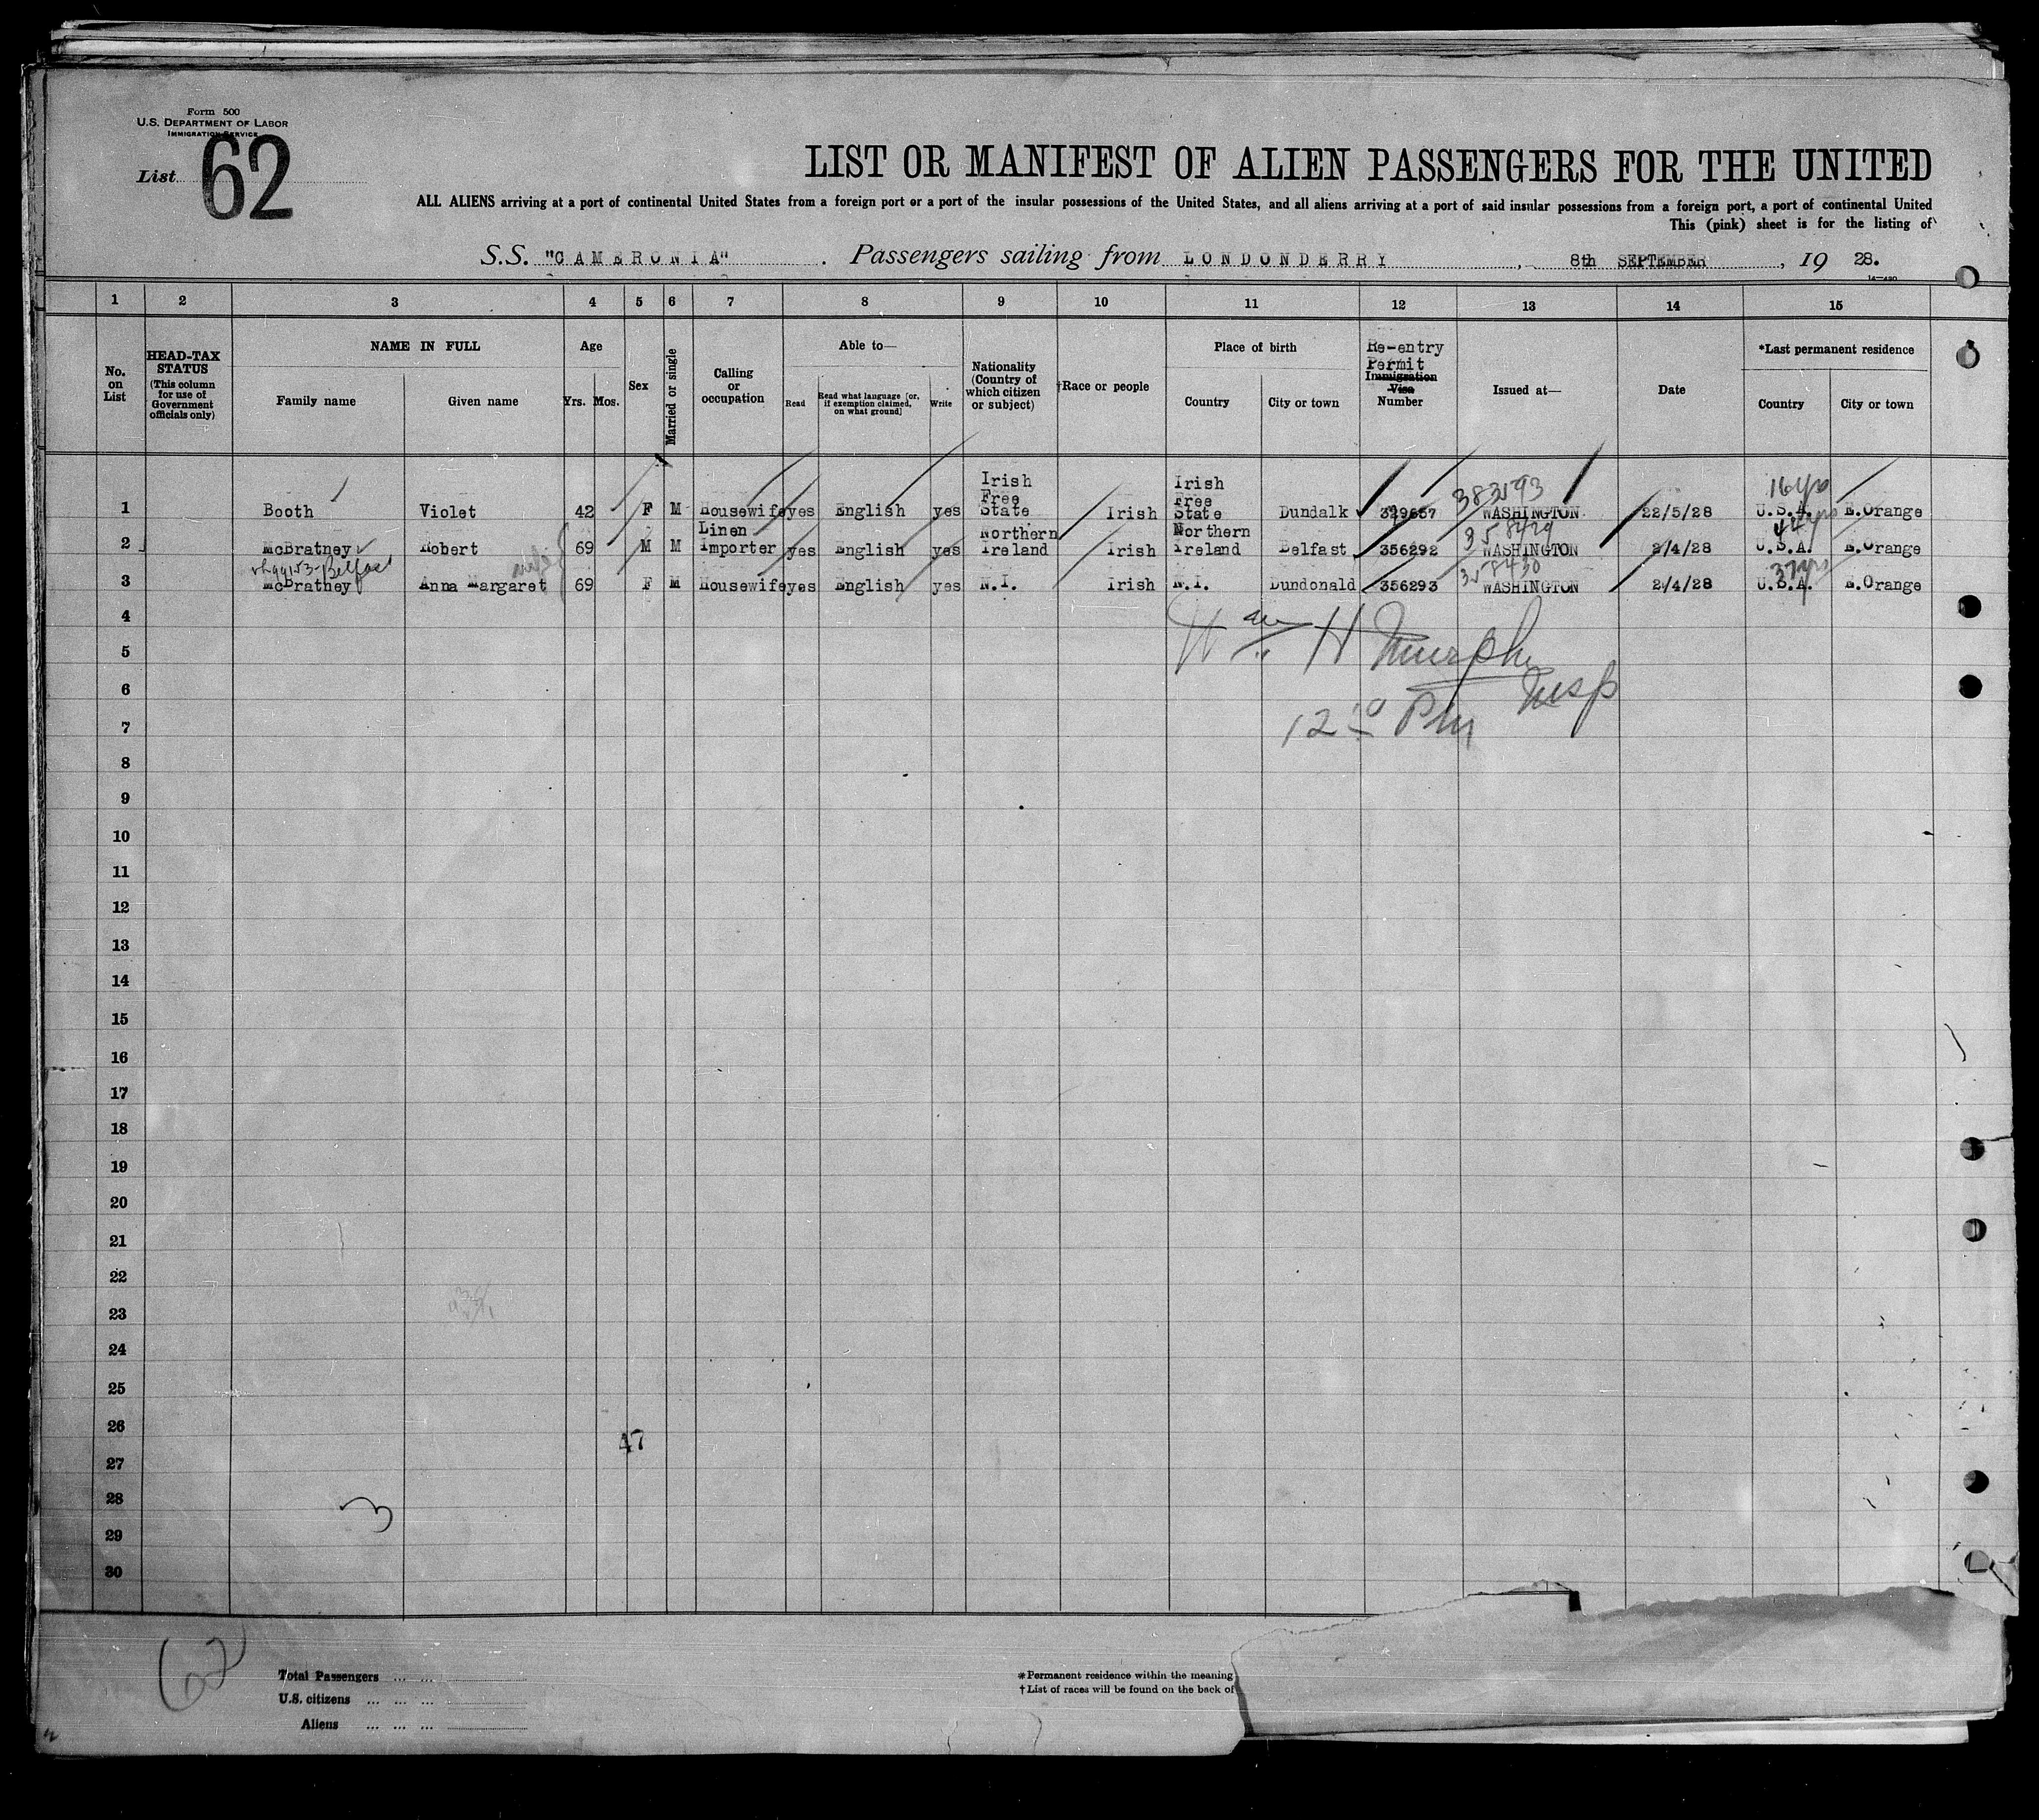 Form 500
U.S. DEPARTMENT OF LABOR
IMMIGRATION SERVICE
List 62
LIST OR MANIFEST OF ALIEN PASSENGERS FOR THE UNITED
ALL ALIENS arriving at a port of continental United States from a foreign port or a port of the insular possessions of the United States, and all aliens arriving at a port of said insular possessions from a foreign port, a port of continental United
This (pink) sheet is for the listing of
S.S. "CAMERONIA". Passengers sailing from LONDONDERRY, 8th SEPTEMBER, 19 28.
14—490
1 2 3 4 5 6 7 8 9 10 11 12 13 14 15
No. on List
HEAD-TAX STATUS (This column for use of Government officials only)
NAME IN FULL
Family name Given name
Age
Yrs. Mos.
Sex
Married or single
Calling or occupation
Able to—
Read Read what language [or, if exemption claimed, on what ground] Write
Nationality (Country of which citizen or subject)
†Race or people
Place of birth
Country City or town
Re-entry Permit
Immigration Visa Number
Issued at—
Date
*Last permanent residence
Country City or town
383593 16 yrs
1 Booth Violet 42 F M Housewife yes English yes Irish Free State Irish Irish Free State Dundalk 349657 WASHINGTON 22/5/28 U.S.A. E.Orange
358429 44 yrs
2 McBratney Robert 69 M M Linen Importer yes English yes Northern Ireland Irish Northern Ireland Belfast 356292 WASHINGTON 2/4/28 U.S.A. E.Orange
Belfast 358430 37 yrs
3 McBratney Anna Margaret 69 F M Housewife yes English yes N.I. Irish N.I. Dundonald 356293 WASHINGTON 2/4/28 U.S.A. E.Orange
4
Wm H Murphy
5
6
Insp
7
12 10 PM
8
9
10
11
12
13
14
15
16
17
18
19
20
21
22
23
24
25
26
47
27
28
3
29
30
62
Total Passengers ... ...
U.S. citizens ... ... ...
Aliens ... ... ...
*Permanent residence within the meaning
†List of races will be found on the back of